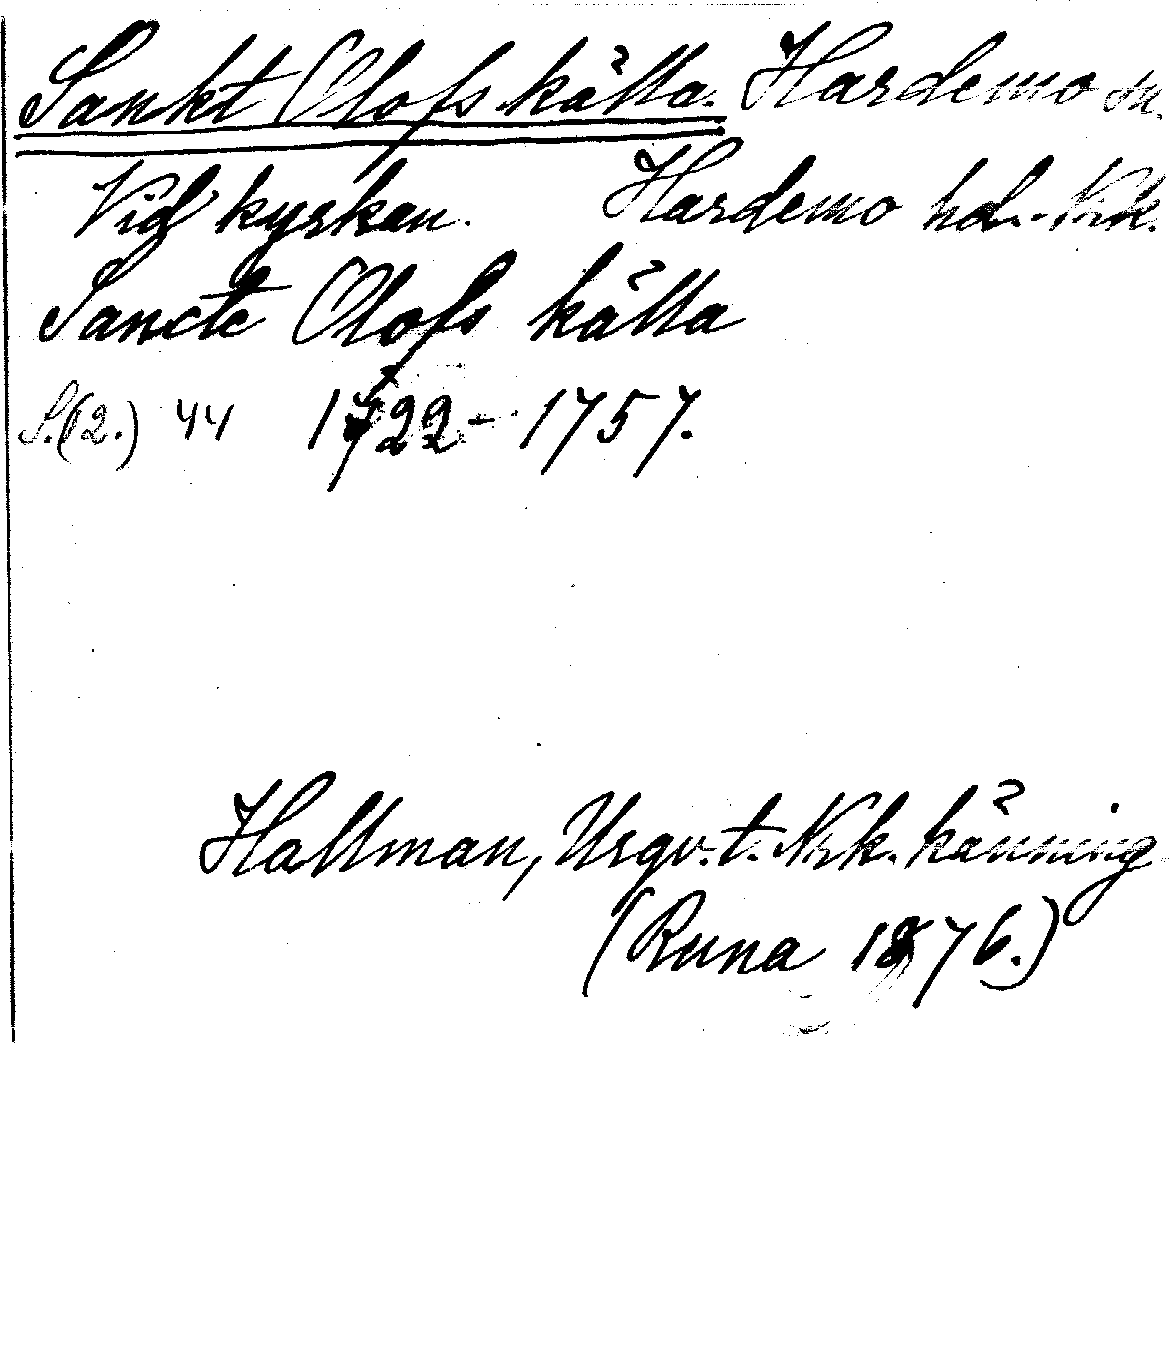 Sankt Olofs källa. Hardemo sn.
Vid kyrkan. Hardemo hd. Nrk.
Sancte Olofs källa
S.(2.) 44 1722 - 1757.
Hallman, Urgv. t. Nrk. känning
(Runa 1876.)